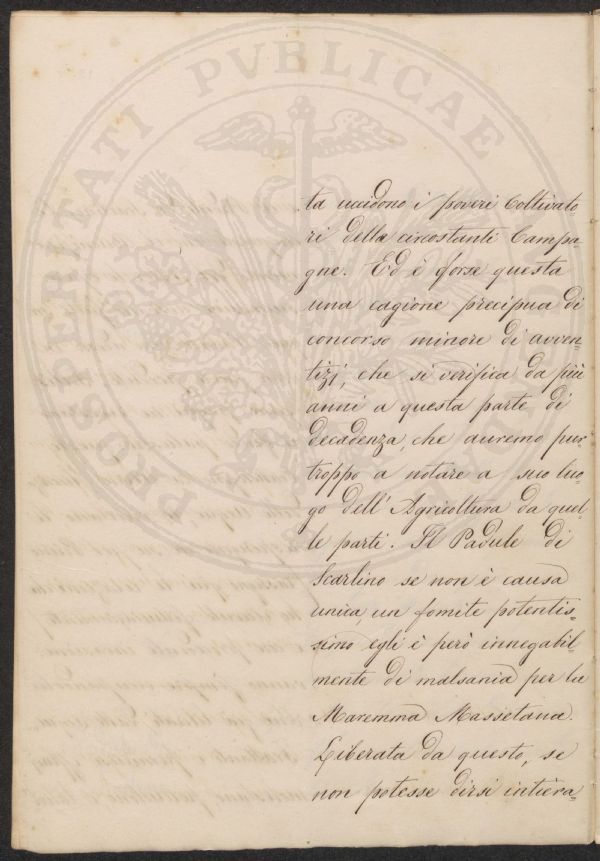 ta uccidono i poveri Coltivato
ri della circostanti Campa=
gne. Ed è forse questa
una cagione precipua di
concorso minore di avven=
tizj, che si verifica da più
anni a questa parte di
decadenza, che avremo pur
troppo a notare a suo luo=
go dell'Agricoltura da quel=
le parti. Il Padule di
Scarlino se non è causa
unica, un fomite potentis=
simo egli è però innegabil=
mente di malsania per la
Maremma Massetana.
Liberata da questo, se
non potesse dirsi intiera=
PROSPERITATI PVBLICAE